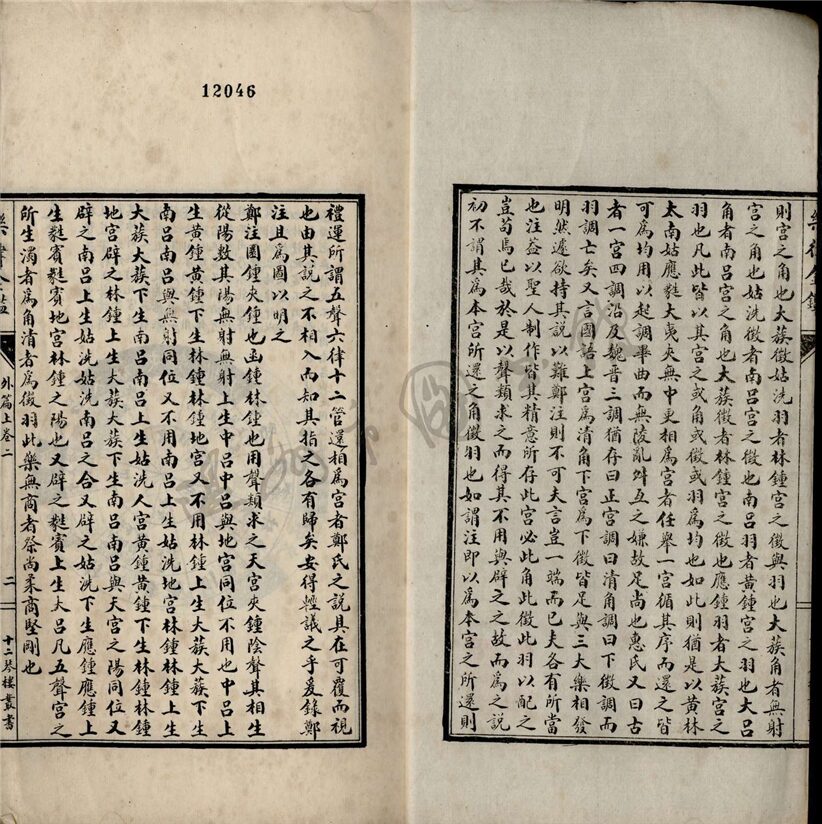 則宮之角也大蔟徵姑洗羽者林鍾宮之徵與羽也大蔟角者無射
宮之角也姑洗徵者南呂宮之徵也南呂羽者黃鍾宮之羽也大呂
角者南呂宮之角也大蔟徵者林鍾宮之徵也應鍾羽者大蔟宮之
羽也凡此皆以其宮之或角或徵或羽爲均也如此則猶是以黃林
太南姑應蕤大夷夾無中更相爲宮者任舉一宮循其序而還之皆
可爲均用以起調畢曲而無陵亂舛互之嫌故足尚也惠氏又曰古
者一宮四調沿及魏晉三調猶存曰正宮調曰清角調曰下徵調而
羽調亡矣又言國語上宮爲清角下宮爲下徵皆足與三大樂相發
明然遽欲持其說以難鄭注則不可夫言豈一端而已夫各有所當
也注益以聖人制作皆其精意所存此宮必此角此徵此羽以配之
豈苟焉已哉於是以聲類求之而得其不用與辟之之故而爲之說
初不謂其爲本宮所還之角徵羽也如謂注即以爲本宮之所還則
12046
禮運所謂五聲六律十二管還相爲宮者鄭氏之說具在可覆而視
也由其說之不相入而知其指之各有歸矣安得輕議之乎爰錄鄭
注且爲圖以明之
鄭注圜鍾夾鍾也函鍾林鍾也用聲類求之天宮夾鍾陰聲其相生
從陽數其陽無射無射上生中呂中呂與地宮同位不用也中呂上
生黃鍾黃鍾下生林鍾林鍾地宮又不用林鍾上生大蔟大蔟下生
南呂南呂與無射同位又不用南呂上生姑洗地宮林鍾林鍾上生
大蔟大蔟下生南呂南呂上生姑洗人宮黃鍾黃鍾下生林鍾林鍾
地宮辟之林鍾上生大蔟大蔟下生南呂南呂與天宮之陽同位又
辟之南呂上生姑洗姑洗南呂之合又辟之姑洗下生應鍾應鍾上
生蕤賓蕤賓地宮林鍾之陽也又辟之蕤賓上生大呂凡五聲宮之
所生濁者爲角清者爲徵羽此樂無商者祭尚柔商堅剛也
外篇上卷二
二
十二琴樓叢書